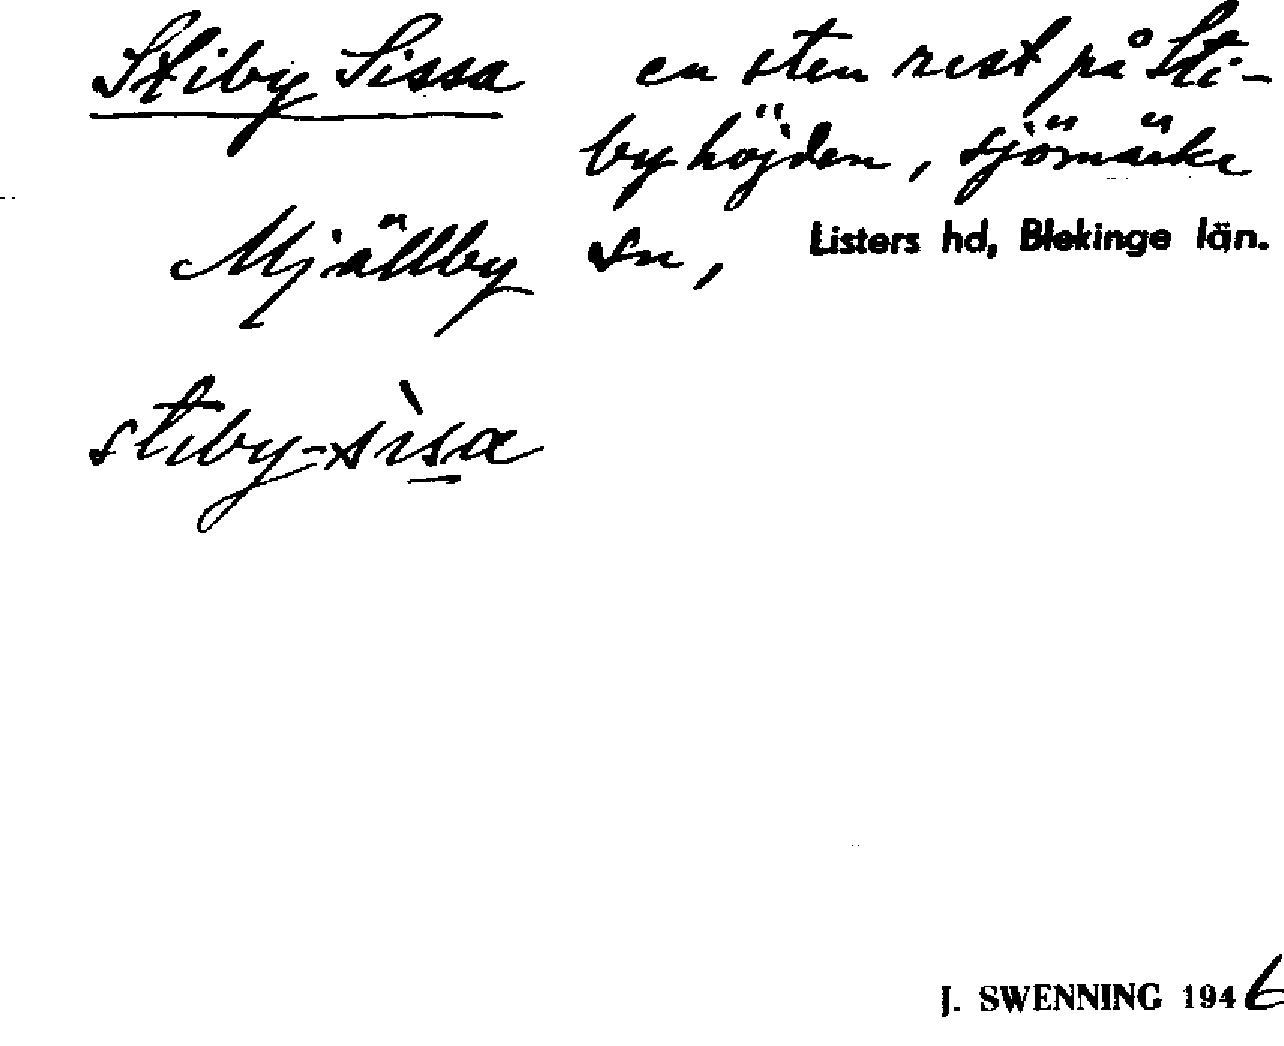 Stiby Sissa en sten rest på Sti-
by höjden, sjömärke
Mjällby sn, Listers hd, Blekinge län.
stiby-sìsa
J. SWENNING 1946